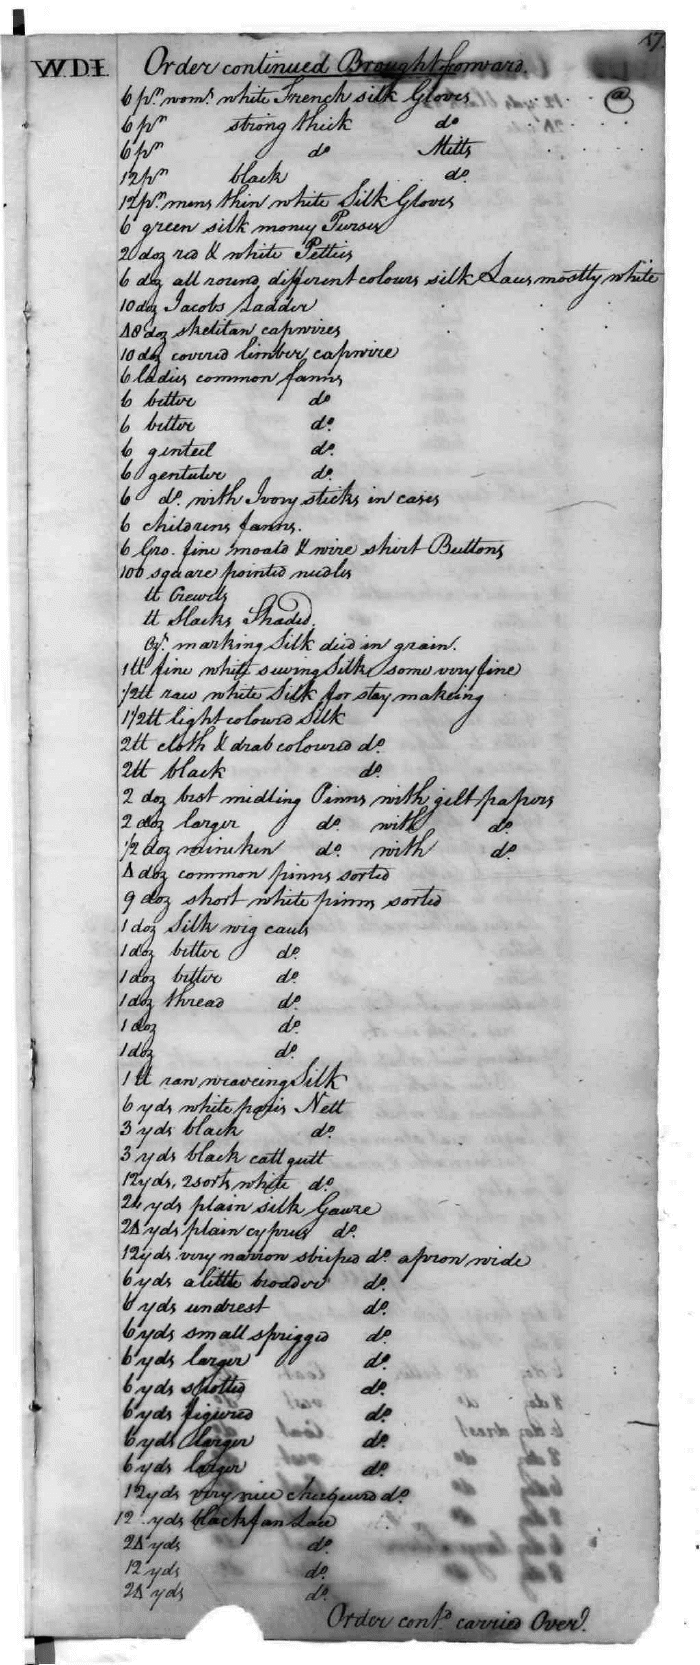 17.
W.D.I. Order continued Brought forward.
6 prs woms white French silk Gloves @
6 prs strong thick do.
6 prs do Mitts
12 prs black do.
12 prs mens thin white Silk Gloves
6 green silk money Purses
2 doz red & white Petties
6 doz all round different colours silk Laces mostly white
10 doz Jacobs Ladder
48 doz skelitan capwires
10 doz covered limber capwire
6 ladies common fanns
6 better do.
6 better do.
6 genteel do.
6 genteeler do.
6 do. with Ivory sticks in cases
6 childrens fanns.
6 Gro. fine moald & wire shirt Buttons
100 square pointed needles
tt Crewels
tt Slacks Shaded.
marking Silk died in grain.
1 tt fine white sewing Silk some very fine
1/2 tt raw white Silk for stay makeing
1 1/2 tt light coloured Silk
2 tt cloth & drab coloured do.
2 tt black do.
2 doz best midling Pinns with gilt papers
2 doz larger do. with do.
1/2 doz mineken do. with do.
4 doz common pinns sorted
9 doz short white pinns sorted
1 doz Silk wig cauls
1 doz better do.
1 doz better do.
1 doz thread do.
1 doz do.
1 doz do.
1 tt raw weaveing Silk
6 yds white paris Nett
3 yds black do.
3 yds black catt gutt
12 yds, 2 sorts white do.
24 yds plain silk Gawze
24 yds plain cyprus do.
12 yds very narrow striped do. apron wide
6 yds a little broader do.
6 yds undrest do.
6 yds small sprigged do.
6 yds larger do.
6 yds spotted do.
6 yds figured do.
6 yds larger do.
6 yds larger do.
12 yds very nice do.
12 yds black fan Lace
24 yds do.
12 yds do.
24 yds do.
Order contd. carried Over.